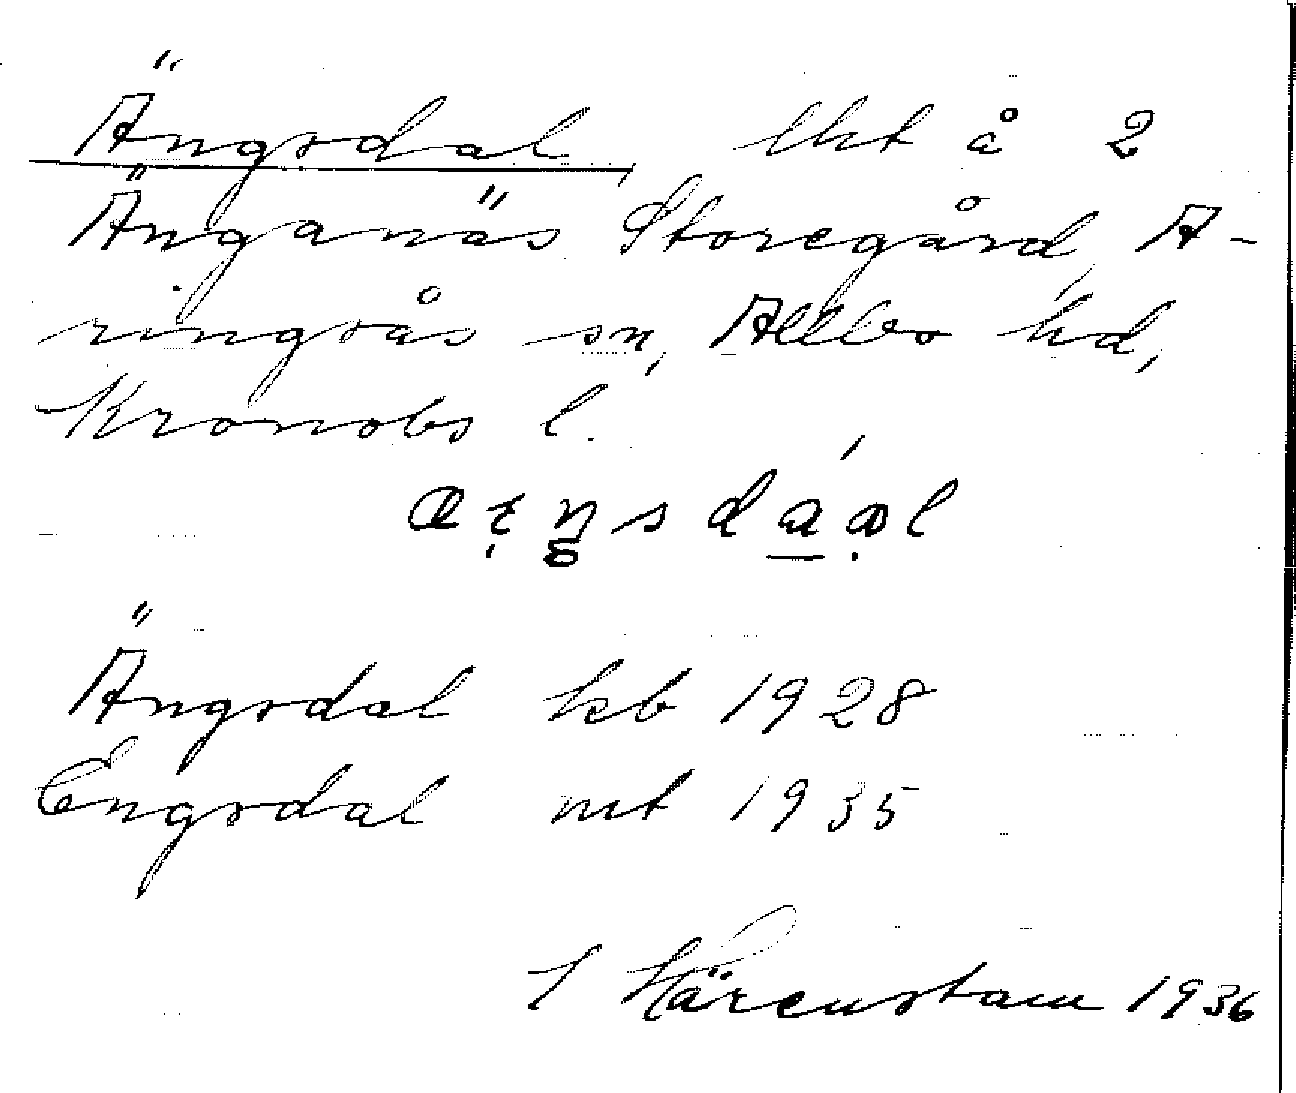 Ängsdal lht å 2
Änganäs Storegård, A-
ringsås sn, Allbo hd,
Kronobs l.
Ängsdal kb 1928
Engsdal mt 1935
1936